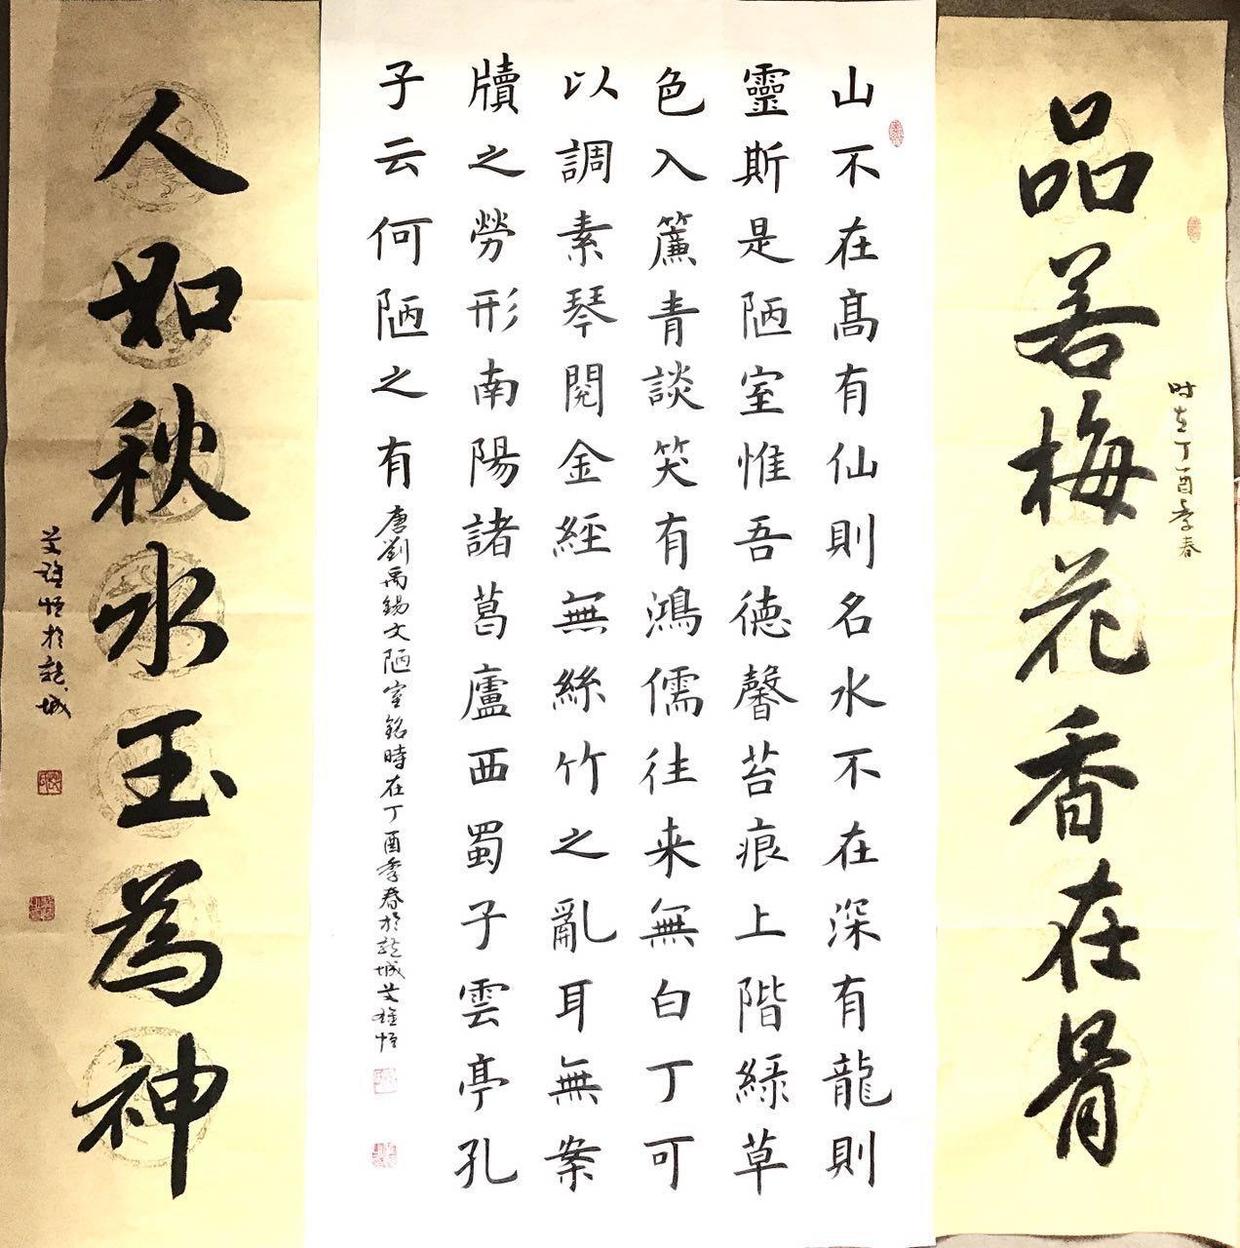 品若梅花香在骨
时在丁酉季春
山不在髙有仙則名水不在深有龍則
靈斯是陋室惟吾徳馨苔痕上階綠草
色入簾青談笑有鴻儒往来無白丁可
以調素琴閱金經無絲竹之亂耳無案
牘之勞形南陽諸葛廬西蜀子雲亭孔
子云何陋之有
唐劉禹錫文陋室銘時在丁酉季春於龍城
人如秋水玉為神
於龍城